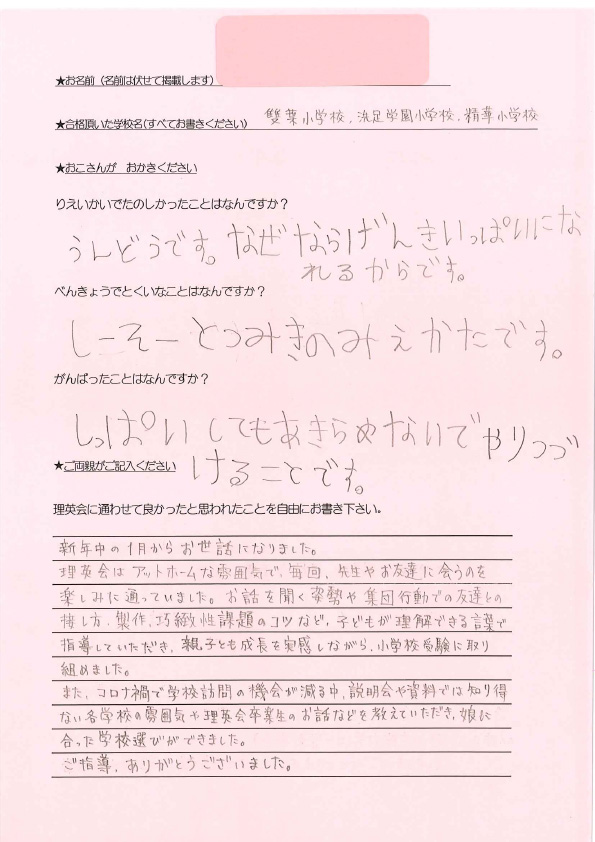 ★お名前（名前は伏せて掲載します）
★合格頂いた学校名（すべてお書きください） 雙葉小学校、洗足学園小学校、精華小学校
★おこさんが おかきください
りえいかいでたのしかったことはなんですか？
うんどうです。なぜならげんきいっぱいにな
れるからです。
べんきょうでとくいなことはなんですか？
しーそーとつみきのみえかたです。
がんばったことはなんですか？
しっぱいしてもあきらめないでやりつづ
けることです。
★ご両親がご記入ください
理英会に通わせて良かったと思われたことを自由にお書き下さい。
新年中の1月からお世話になりました。
理英会はアットホームな雰囲気で、毎回、先生やお友達に会うのを
楽しみに通っていました。お話を聞く姿勢や集団行動での友達との
接し方、製作、巧緻性課題のコツなど、子どもが理解できる言葉で
指導していただき、親子とも成長を実感しながら、小学校受験に取り
組めました。
また、コロナ禍で学校訪問の機会が減る中、説明会や資料では知り得
ない各学校の雰囲気や理英会卒業生のお話などを教えていただき、娘に
合った学校選びができました。
ご指導、ありがとうございました。